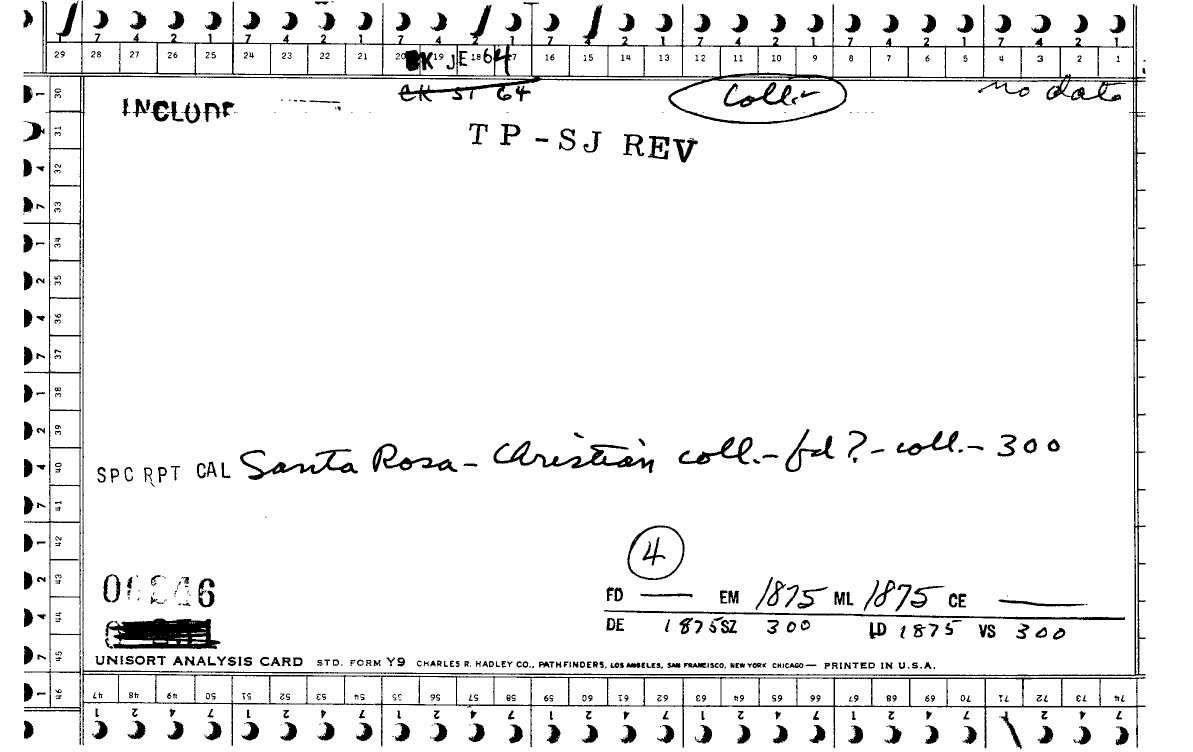 7 4 2 1 7 4 2 1 7 4 2 1 7 4 2 1 7 4 2 1 8 7 4 2 1 7 4 2 1
29 28 27 26 25 24 23 22 21 20 19 18 17 16 15 14 13 12 11 10 9 8 7 6 5 4 3 2 1
CK JE 64
CK ST 64
INCLUDE
coll.
no date
TP-SJ REV
30
31
32
33
34
35
36
37
38
39
SPC RPT CAL Santa Rosa - Christian coll. - fd? - coll. - 300
40
41
42
4
43
FD — EM 1875 ML 1875 CE —
44
DE 1875 SZ 300 LD 1875 VS 300
45
UNISORT ANALYSIS CARD STD. FORM Y9 CHARLES R. HADLEY CO., PATHFINDERS, LOS ANGELES, SAN FRANCISCO, NEW YORK CHICAGO — PRINTED IN U.S.A.
46
47 48 49 50 51 52 53 54 55 56 57 58 59 60 61 62 63 64 65 66 67 68 69 70 71 72 73 74
1 2 4 7 1 2 4 7 1 2 4 7 1 2 4 7 1 2 4 7 1 2 4 7 1 2 4 7